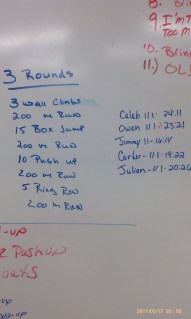 8. B
9. I'm T
Too M
10. Blin
11.) OL
3 Rounds
3 Wall Climbs
200 m Run
15 Box Jump
200 m Run
10 Push up
200 m Run
5 Ring Row
200 m Run
Caleb 111- 24:11
Owen 111- 23:21
Jimmy 11- 16:14
Carter- 111- 19:22
Julian- 111- 20:26
-up
Push up
uats
up
2011/05/17 20:36